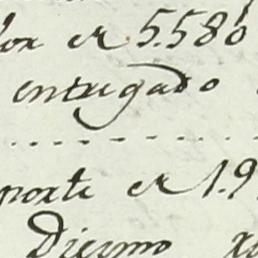 lor en 5.580
entregado
porte en 1.9
Diezmo